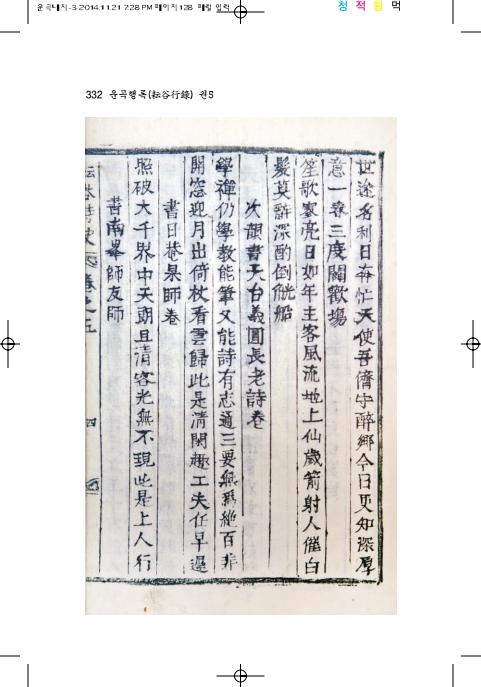 운곡내지-3 2014.11.21 7:28 PM 페이지128 매일 인력
청 적 황 먹
332 운곡행록(耘谷行錄) 권5
世途名利日每忙天使吾儕守醉鄕今日更知深厚
意一春三度閙歡場
笙歌寥亮日如年主客風流地上仙歲箭射人催白
髮莫辭深酌倒觥船
次韻書天台義圓長老詩卷
學禪仍學敎能筆又能詩有志通三要無爲絶百非
開窓迎月出倚杖看雲歸此是淸閑趣工夫任早遲
書日菴杲師卷
照破大千界中天朗且淸容光無不現此是上人行
書南峯師友師
耘谷詩史 卷之五
四